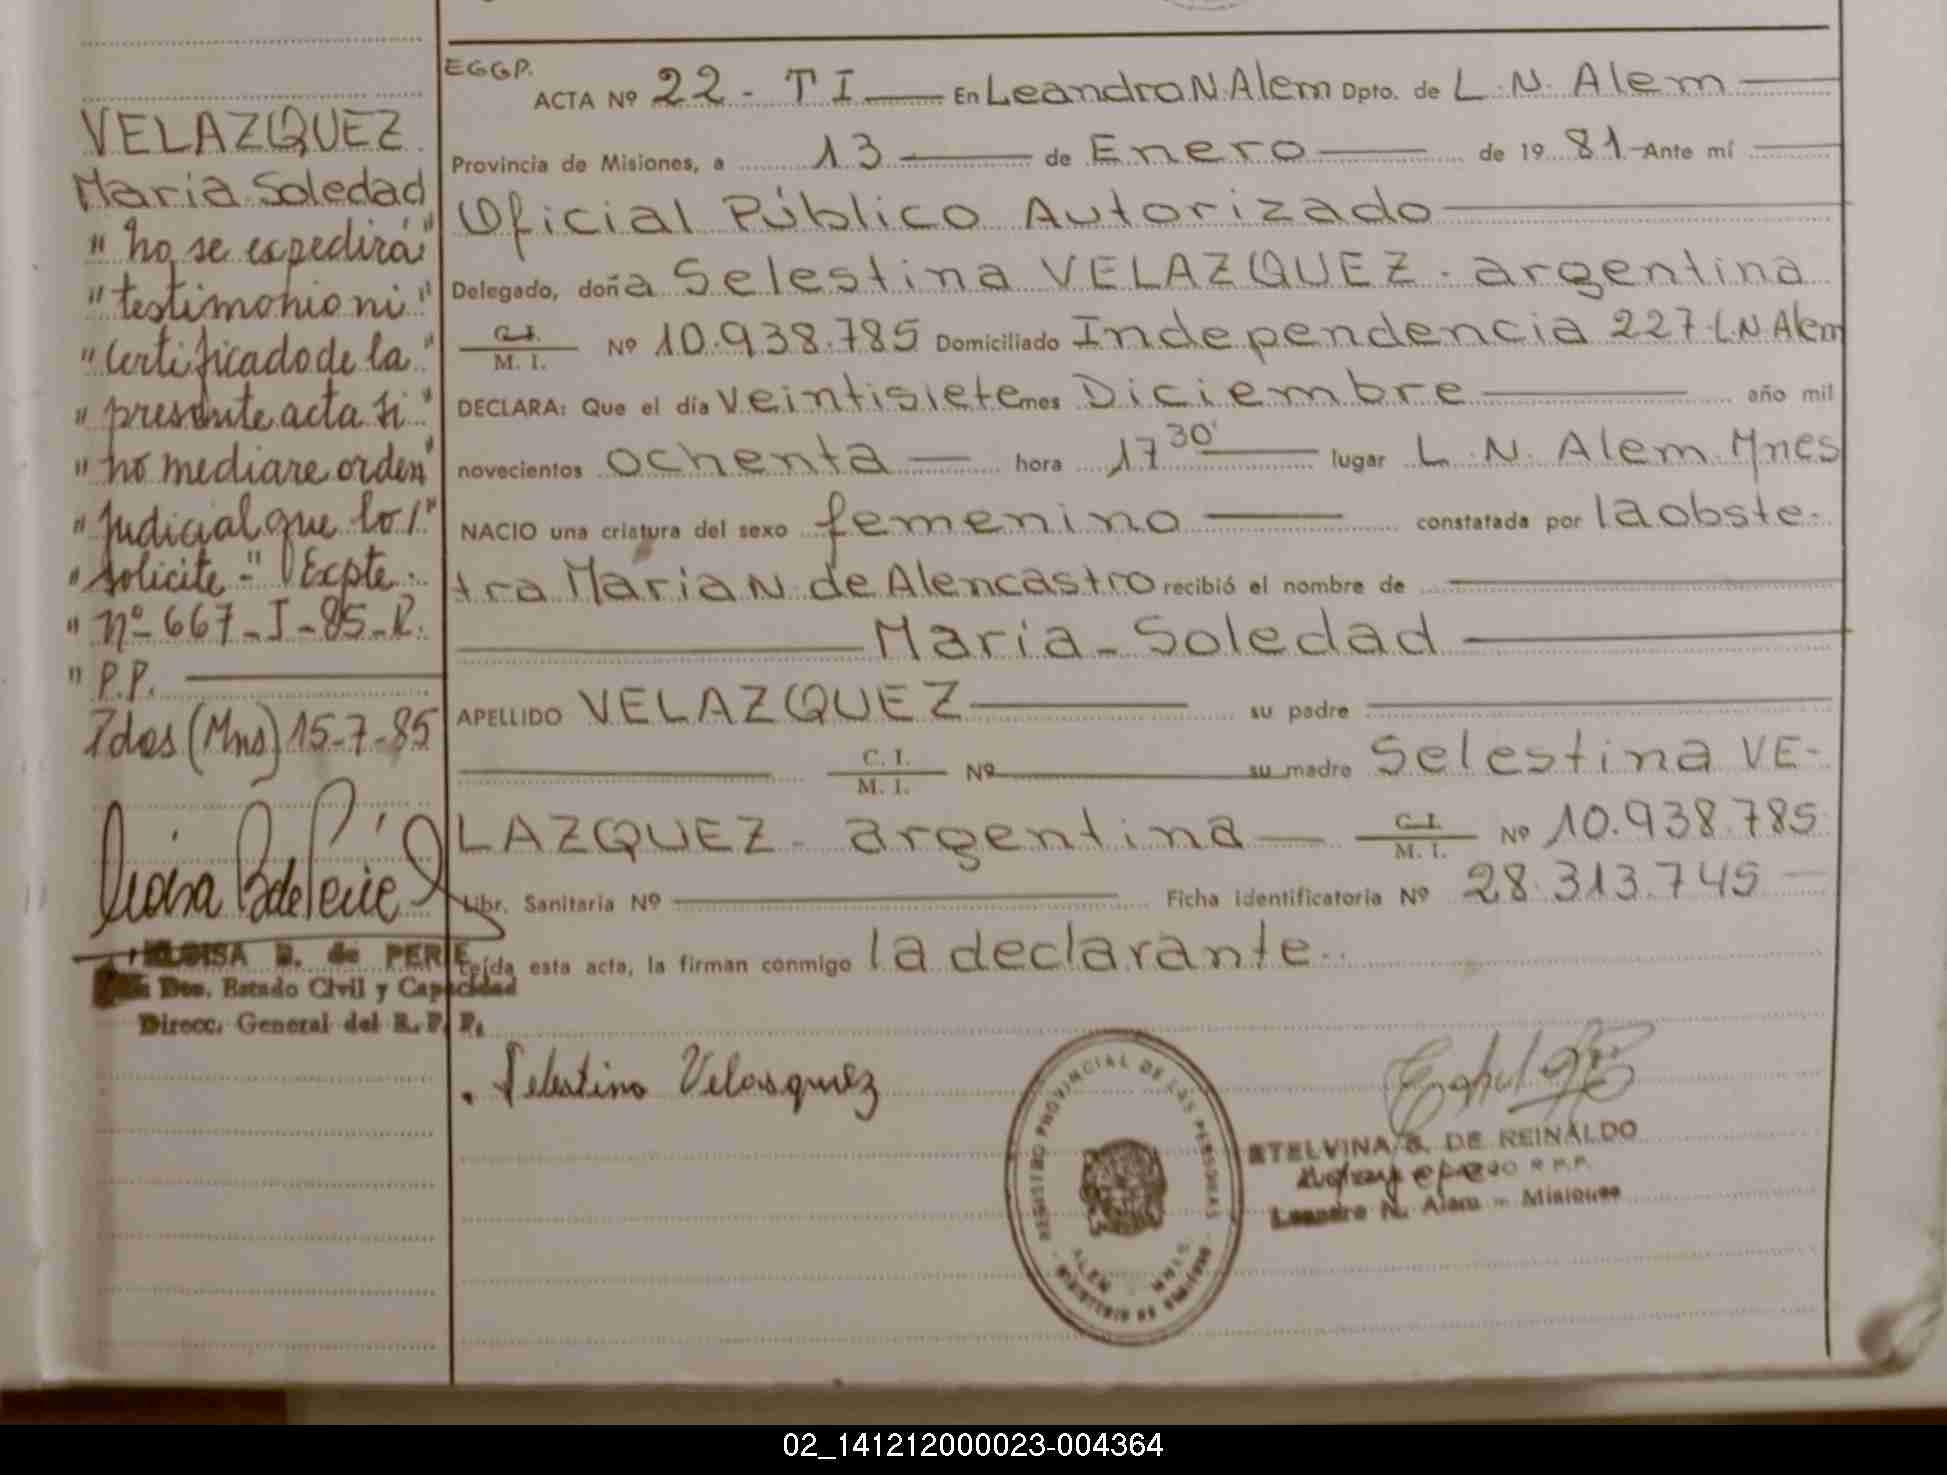 VELAZQUEZ
Maria Soledad
" no se expedirá "
" testimonio ni "
" certificado de la "
" presente acta si "
" no mediare orden "
" judicial que lo / "
" solicite - " Expte.
" nº 667 - J - 85 - R.
" P.P.
Pdas (Mns) 15-7-85
ELOISA B. de PERIE
Dto. Estado Civil y Capacidad
Direcc. General del R. P. P.
EGGP.
ACTA Nº 22 - T I En Leandro N Alem Dpto. de L. N. Alem
Provincia de Misiones, a 13 de Enero de 19 81 Ante mí
Oficial Público Autorizado
Delegado, doña Selestina VELAZQUEZ - argentina
C. I. / M. I. Nº 10.938.785 Domiciliado Independencia 227 L.N Alem
DECLARA: Que el día veintisiete mes Diciembre año mil
novecientos ochenta hora 17 30' lugar L. N. Alem Mnes
NACIO una criatura del sexo femenino constatada por la obste-
tra Maria N de Alencastro recibió el nombre de
Maria - Soledad
APELLIDO VELAZQUEZ su padre
C. I. / M. I. Nº su madre Selestina VE-
LAZQUEZ - argentina C. I. / M. I. Nº 10.938.785
Libr. Sanitaria Nº Ficha identificatoria Nº 28.313.745
Leída esta acta, la firman conmigo la declarante.
Selestina Velasquez
REGISTRO PROVINCIAL DE LAS PERSONAS
ALEM MNES.
ETELVINA G. DE REINALDO
R.P.P.
Leandro N. Alem - Misiones
02_141212000023-004364